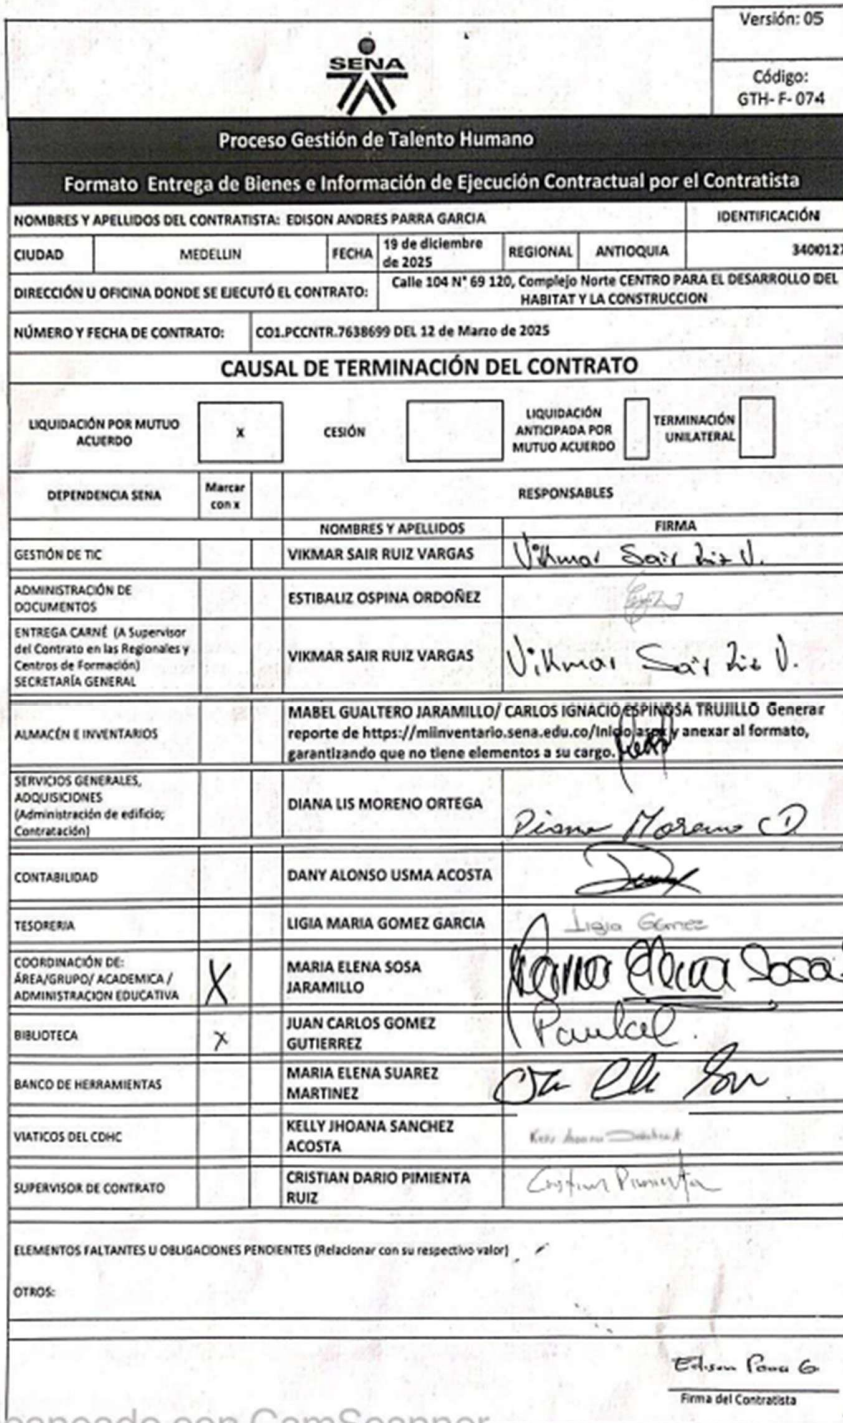 Versión: 05
SENA
Código:
GTH- F- 074
Proceso Gestión de Talento Humano
Formato Entrega de Bienes e Información de Ejecución Contractual por el Contratista
NOMBRES Y APELLIDOS DEL CONTRATISTA: EDISON ANDRES PARRA GARCIA IDENTIFICACIÓN
CIUDAD MEDELLIN FECHA 19 de diciembre de 2025 REGIONAL ANTIOQUIA 3400127
DIRECCIÓN U OFICINA DONDE SE EJECUTÓ EL CONTRATO: Calle 104 N° 69 120, Complejo Norte CENTRO PARA EL DESARROLLO DEL
HABITAT Y LA CONSTRUCCION
NÚMERO Y FECHA DE CONTRATO: CO1.PCCNTR.7638699 DEL 12 de Marzo de 2025
CAUSAL DE TERMINACIÓN DEL CONTRATO
LIQUIDACIÓN POR MUTUO ACUERDO x CESIÓN LIQUIDACIÓN ANTICIPADA POR MUTUO ACUERDO TERMINACIÓN UNILATERAL
DEPENDENCIA SENA Marcar con x RESPONSABLES
NOMBRES Y APELLIDOS FIRMA
GESTIÓN DE TIC VIKMAR SAIR RUIZ VARGAS Vikmar Sair Ruiz V.
ADMINISTRACIÓN DE
DOCUMENTOS ESTIBALIZ OSPINA ORDOÑEZ
ENTREGA CARNÉ (A Supervisor
del Contrato en las Regionales y
Centros de Formación)
SECRETARÍA GENERAL
VIKMAR SAIR RUIZ VARGAS Vikmar Sair Ruiz V.
ALMACÉN E INVENTARIOS
MABEL GUALTERO JARAMILLO/ CARLOS IGNACIO ESPINOSA TRUJILLO Generar
reporte de https://miinventario.sena.edu.co/Inicio.aspx y anexar al formato,
garantizando que no tiene elementos a su cargo.
SERVICIOS GENERALES,
ADQUISICIONES
(Administración de edificio;
Contratación)
DIANA LIS MORENO ORTEGA Diana Moreno O
CONTABILIDAD DANY ALONSO USMA ACOSTA
TESORERIA LIGIA MARIA GOMEZ GARCIA Ligia Gomez
COORDINACIÓN DE:
ÁREA/GRUPO/ ACADEMICA /
ADMINISTRACION EDUCATIVA
X
MARIA ELENA SOSA
JARAMILLO
Elena Sosa
BIBLIOTECA x
JUAN CARLOS GOMEZ
GUTIERREZ
BANCO DE HERRAMIENTAS
MARIA ELENA SUAREZ
MARTINEZ
VIATICOS DEL CDHC
KELLY JHOANA SANCHEZ
ACOSTA
SUPERVISOR DE CONTRATO
CRISTIAN DARIO PIMIENTA
RUIZ
Cristian Pimienta
ELEMENTOS FALTANTES U OBLIGACIONES PENDIENTES (Relacionar con su respectivo valor)
OTROS:
Edison Parra G
Firma del Contratista